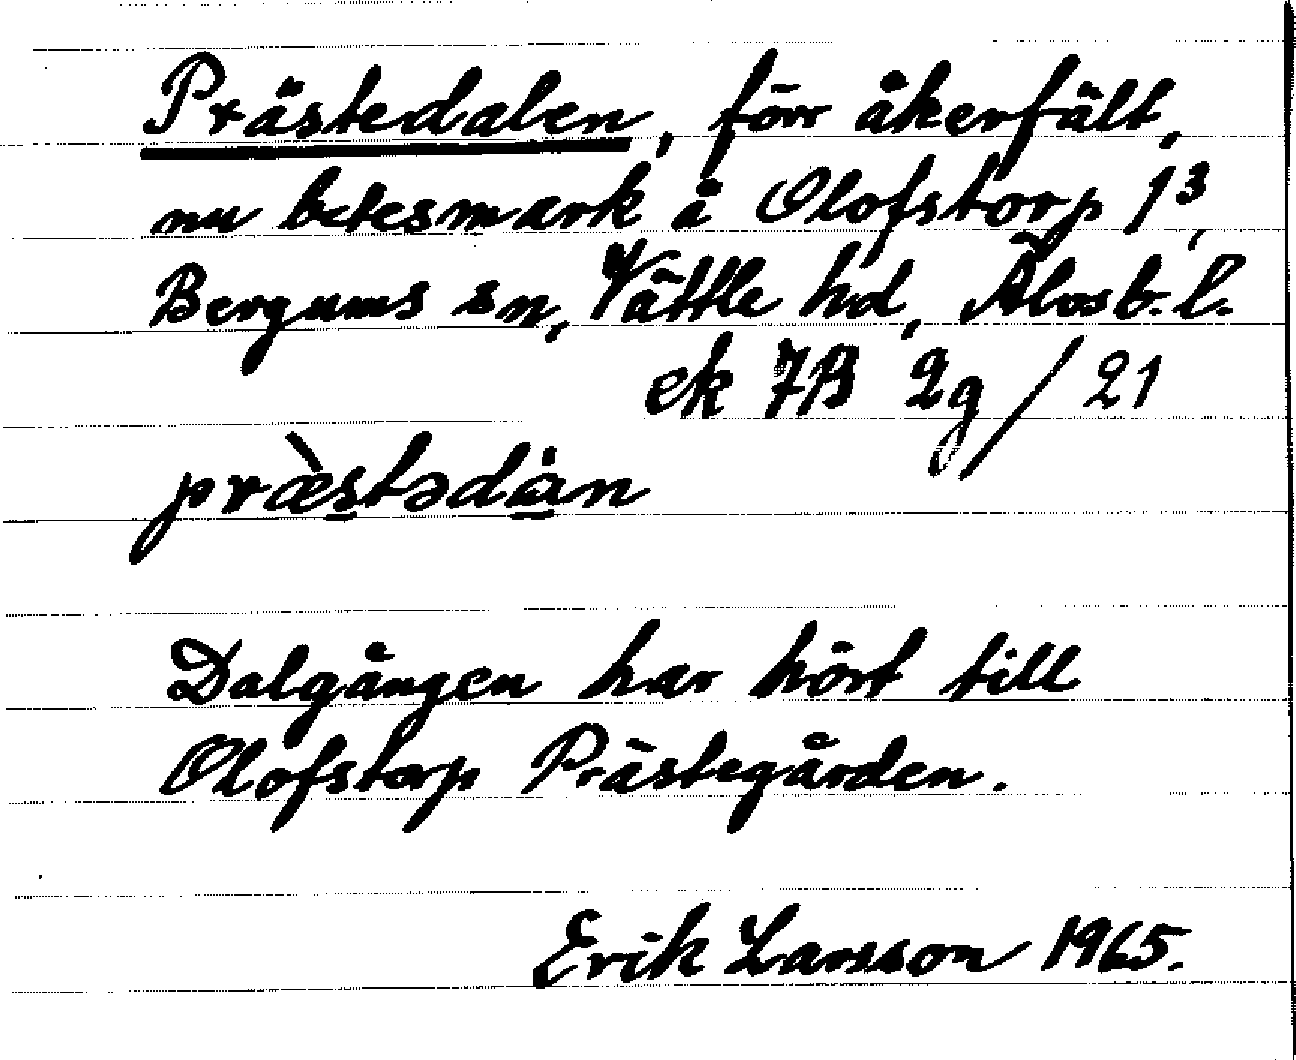 Prästedalen, förr åkerfält,
nu betesmark å Olofstorp 1³,
Bergums sn, Vättle hd, Älvsb. l.
ek 7B 2g/21
præ̀s̲tədȧ̲n
Dalgången har hört till
Olofstorp Prästegården.
Erik Larsson 1965.